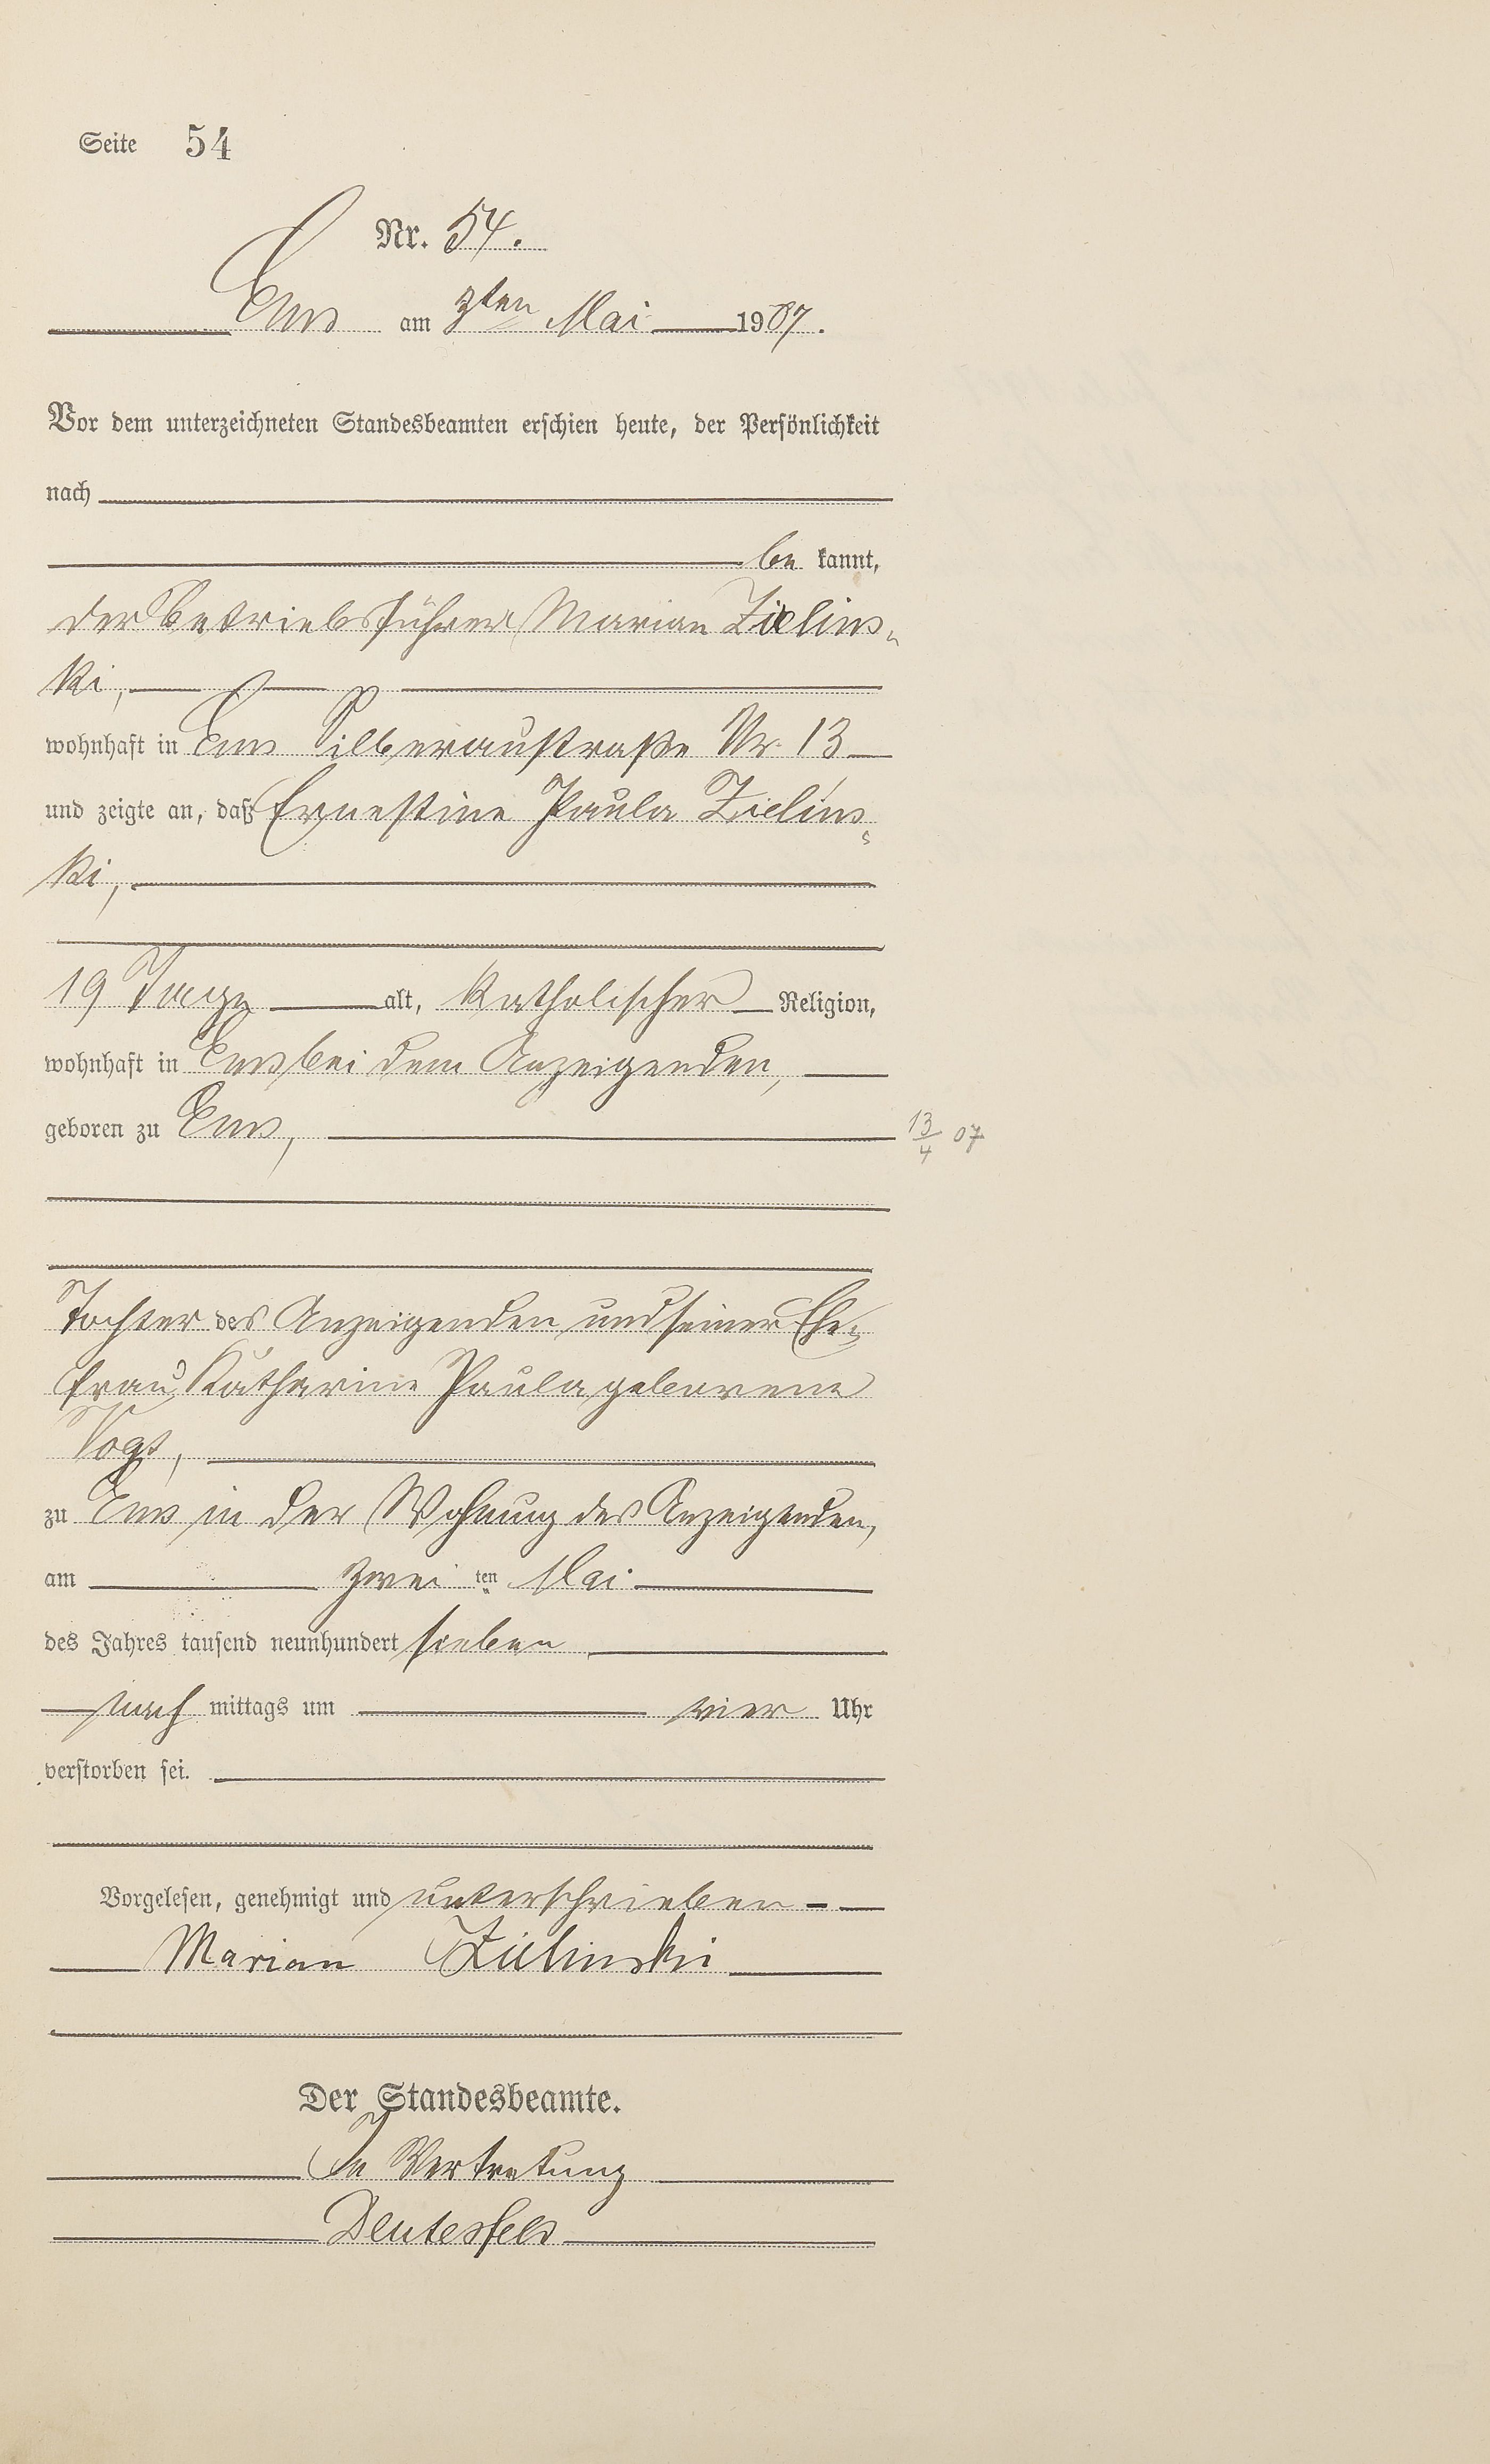 Seite 54
Nr. 54.
Ems am 3ten Mai 1907.
Vor dem unterzeichneten Standesbeamten erschien heute, der Persönlichkeit
nach
be kannt,
der Betriebsführer Marian Zielins-
ki,
wohnhaft in Ems Silberaustraße Nr. 13
und zeigte an, daß Ernestine Paula Zielins-
ki,
19 Tage alt, katholischer Religion,
wohnhaft in Ems bei dem Anzeigenden,
geboren zu Ems,
13/4 07
Tochter des Anzeigenden und seiner Ehe-
frau Katharine Paula geborene
Vogt,
zu Ems in der Wohnung des Anzeigenden,
am zwei ten Mai
des Jahres tausend neunhundert sieben
nach mittags um vier Uhr
verstorben sei.
Vorgelesen, genehmigt und unterschrieben
Marian Zielinski
Der Standesbeamte.
In Vertretung